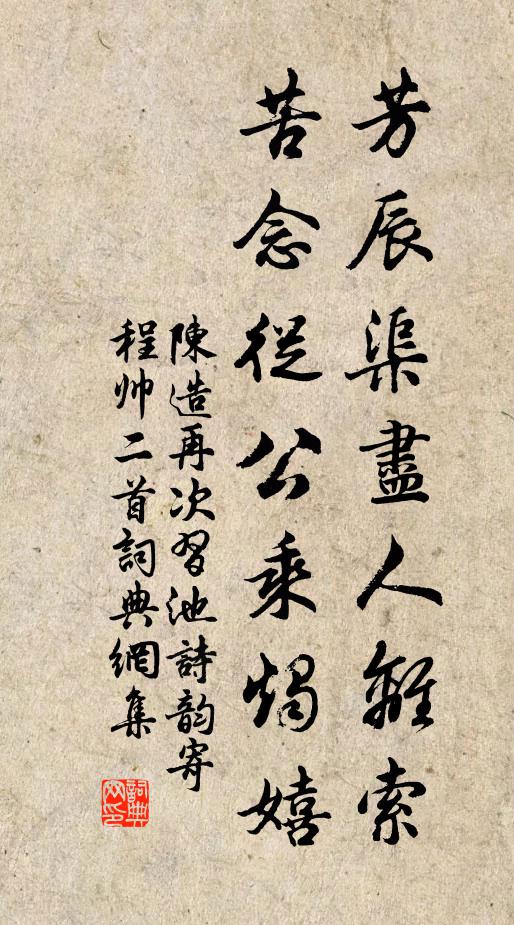 芳辰渠盡人離索
苦念從公乘燭嬉
陳造再次習池詩韵寄
程帅二首詞典網集
詞典
网印